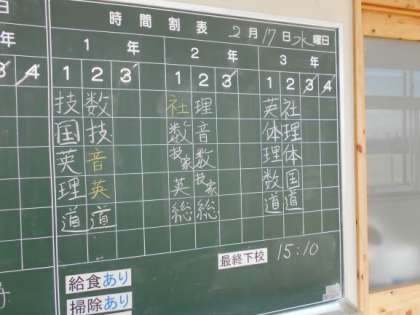 時間割表 2月17日水曜日
1年 2年 3年
3 4 1 2 3 1 2 3 1 2 3 4
技 数 社 理 英 社
国 技 数 音 体 理
英 音 技家 数 理 体
理 英 英 技家 数 国
道 道 総 総 道 道
最終下校 15:10
給食あり
掃除あり